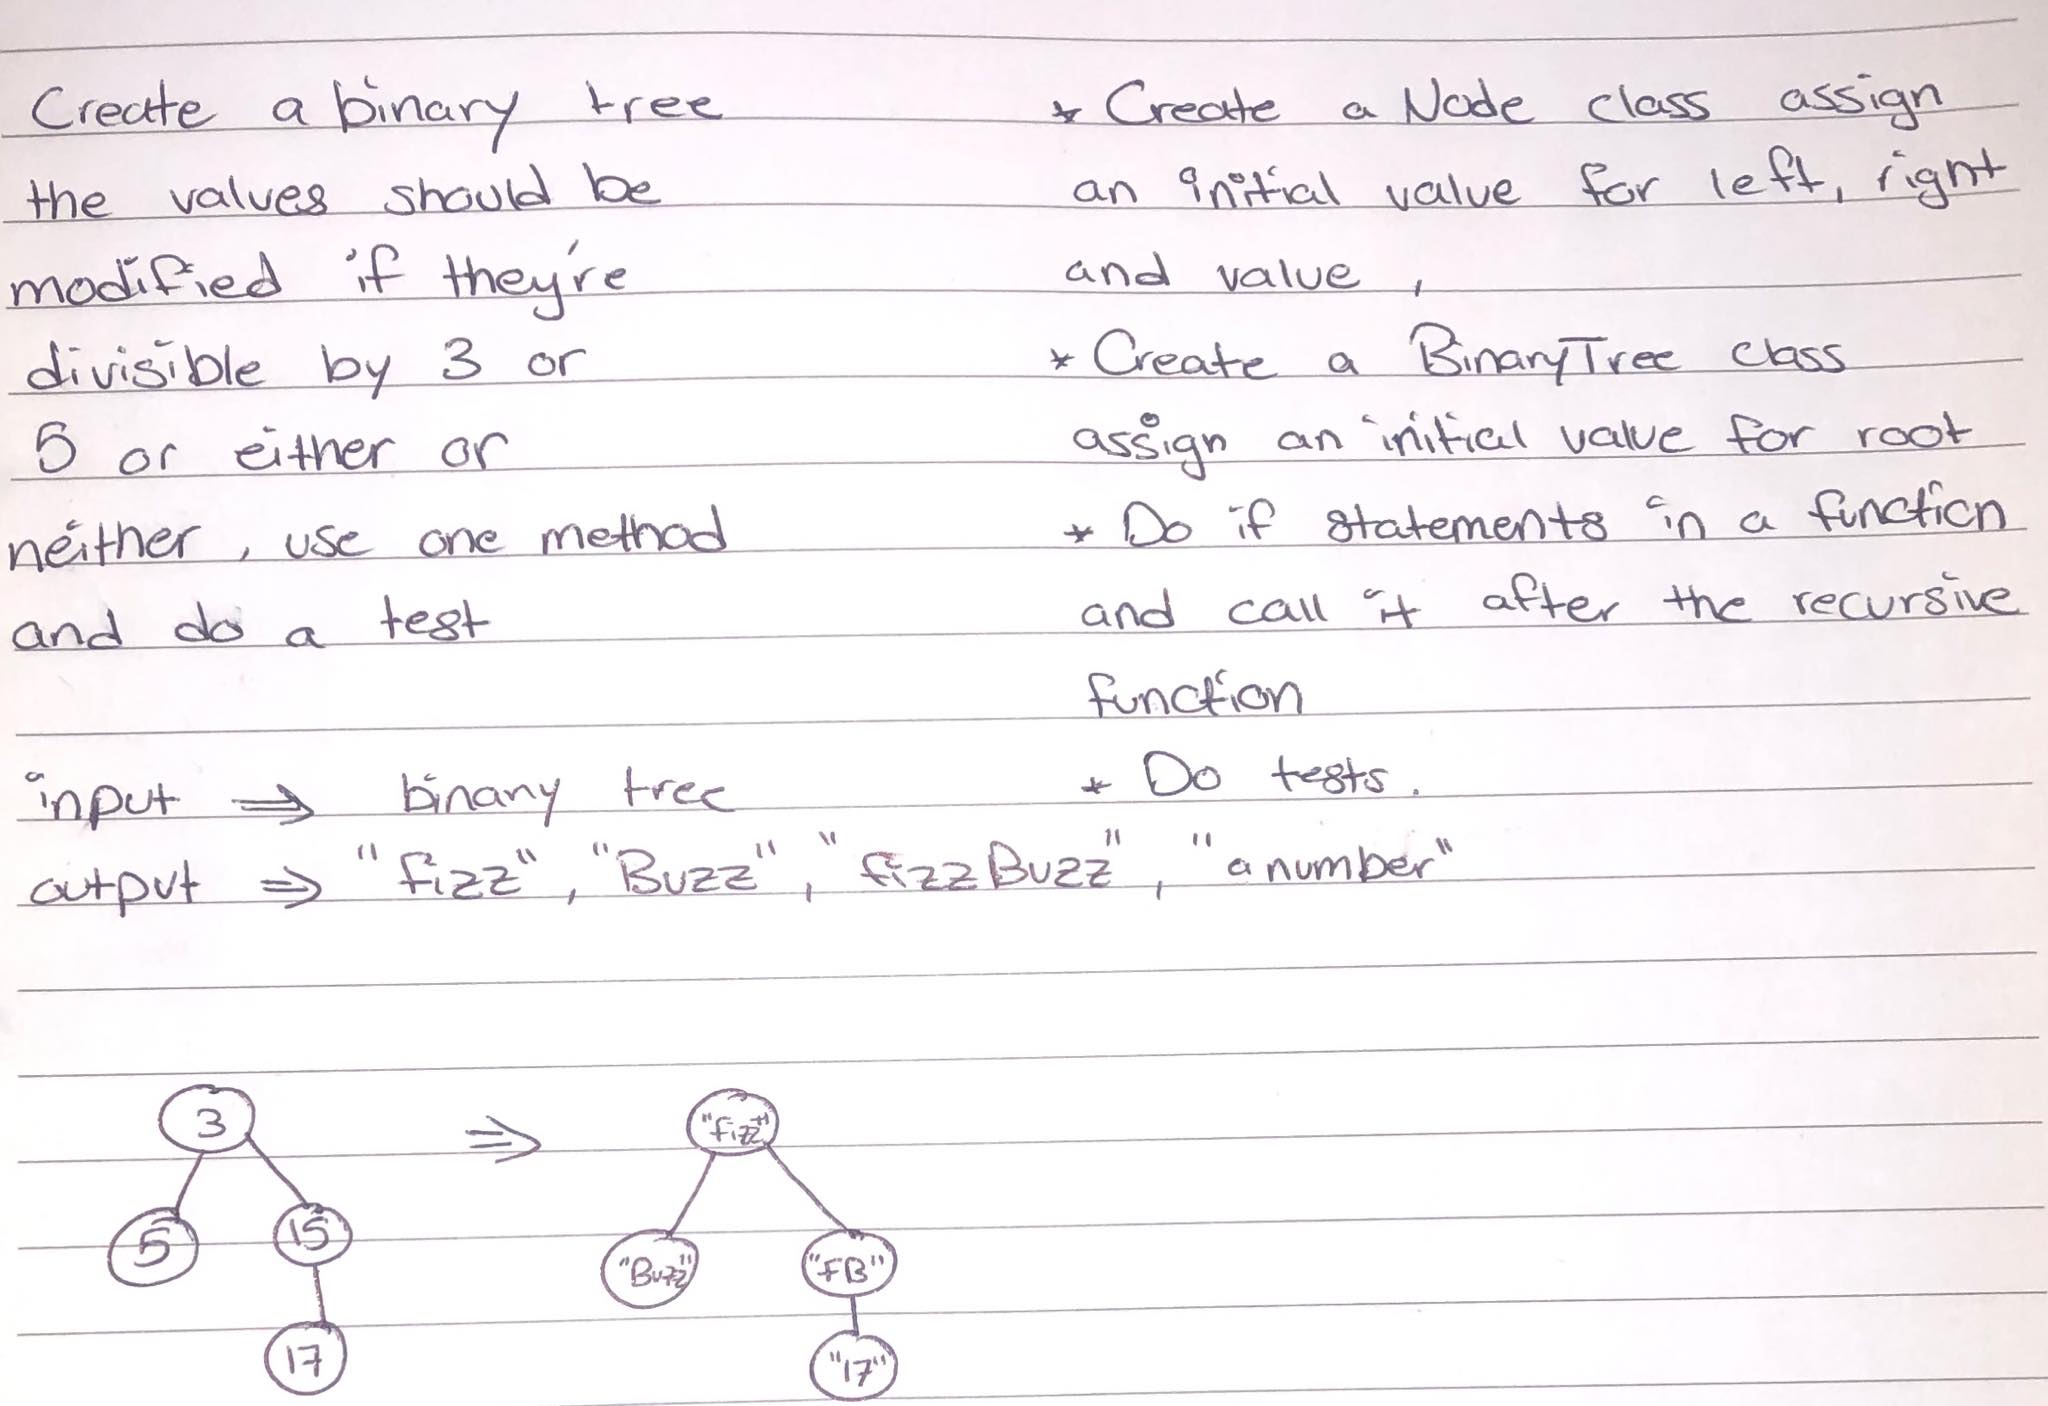 Create a binary tree
the values should be
modified if they're
divisible by 3 or
5 or either or
neither, use one method
and do a test
* Create a Node class assign
an initial value for left, right
and value,
* Create a BinaryTree class
assign an initial value for root
* Do if statements in a function
and call it after the recursive
function
* Do tests.
input ⇒ binary tree
output ⇒ "fizz", "Buzz", "fizzBuzz", "a number"
3 ⇒ "fizz"
5 15 "Buzz" "FB"
17 "17"